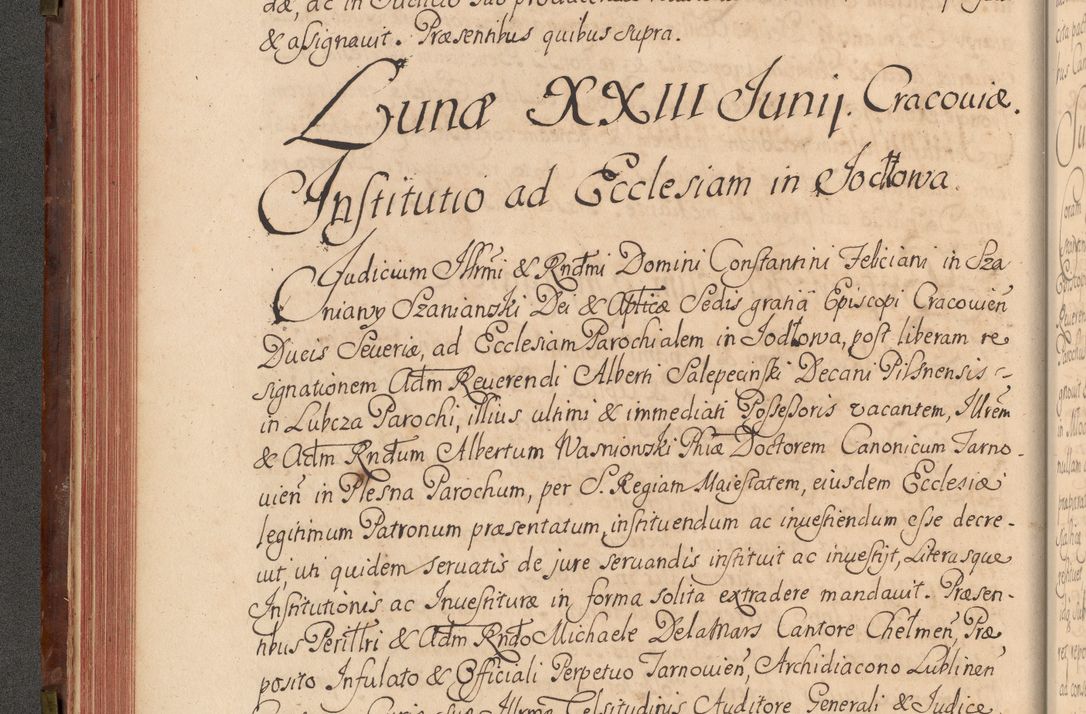 & assignavit. Præsentibus quibus supra.
Lunæ XXIII Junij. Cracoviæ.
Institutio ad Ecclesiam in Jodłowa.
Judicium Illrm̃i & Rnd̃mi Domini Constantini Feliciani in Sza
niawy Szaniawski Dei & Apticæ Sedis gratiâ Episcopi Cracovień
Ducis Severiæ, ad Ecclesiam Parochialem in Jodłowa, post liberam re
signationem Adm Reverendi Alberti Salepecinski Decani Pilsnensis
in Lubcza Parochi, illius ultimi & immediati Possessoris vacantem, Illrem
& Adm Rndum Albertum Wasniowski Phiæ Doctorem Canonicum Tarno-
vień in Plesna Parochum, per S. Regiam Maiestatem, eiusdem Ecclesiæ
legitimum Patronum præsentatum, instituendum ac investiendum esse decre-
vit, uti quidem servatis de jure servandis instituit ac investijt, Literasque
Institutionis ac Investituræ in forma solita extradere mandavit. Præsen-
tibus Perillri & Adm Rndo Michaele DelaMars Cantore Chełmeń, Præ
posito Infulato & Officiali Perpetuo Tarnovień, Archidiacono Lublineń
Celsitudinis Auditore Generali & Judice